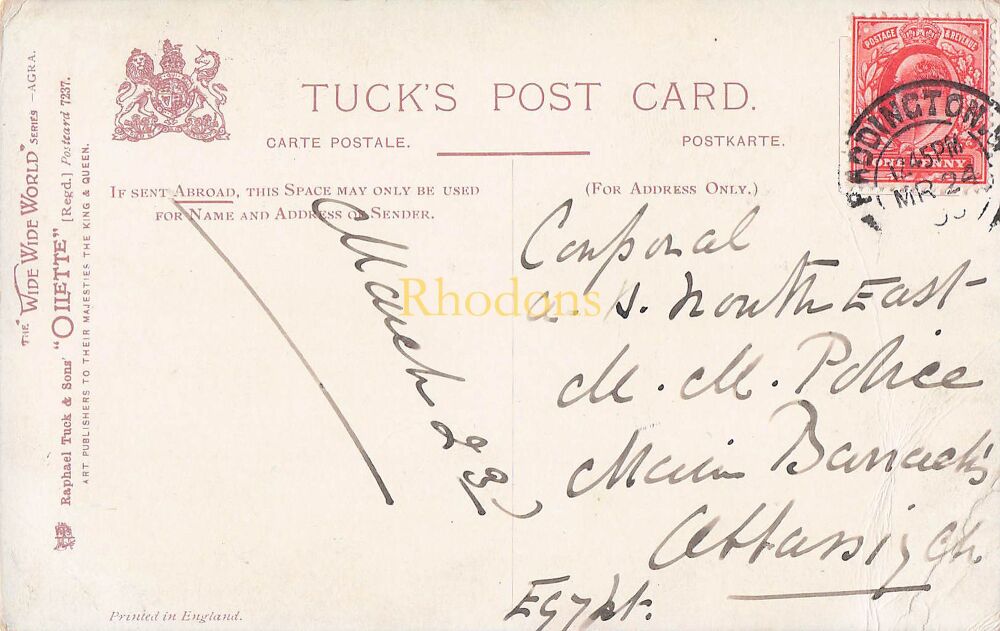 TUCK'S POST CARD.
CARTE POSTALE. POSTKARTE.
IF SENT ABROAD, THIS SPACE MAY ONLY BE USED
FOR NAME AND ADDRESS OF SENDER.
(FOR ADDRESS ONLY.)
THE "WIDE WIDE WORLD" SERIES —AGRA.
Raphael Tuck & Sons' "OILETTE" [Regd.] Postcard 7237.
ART PUBLISHERS TO THEIR MAJESTIES THE KING & QUEEN.
POSTAGE & REVENUE
ONE PENNY
PADDINGTON
12.45PM
MR 24
March 23
Rhodons
Corporal
a. s. North East
M. M. Police
Main Barracks
Abbassiyeh
Egypt.
Printed in England.